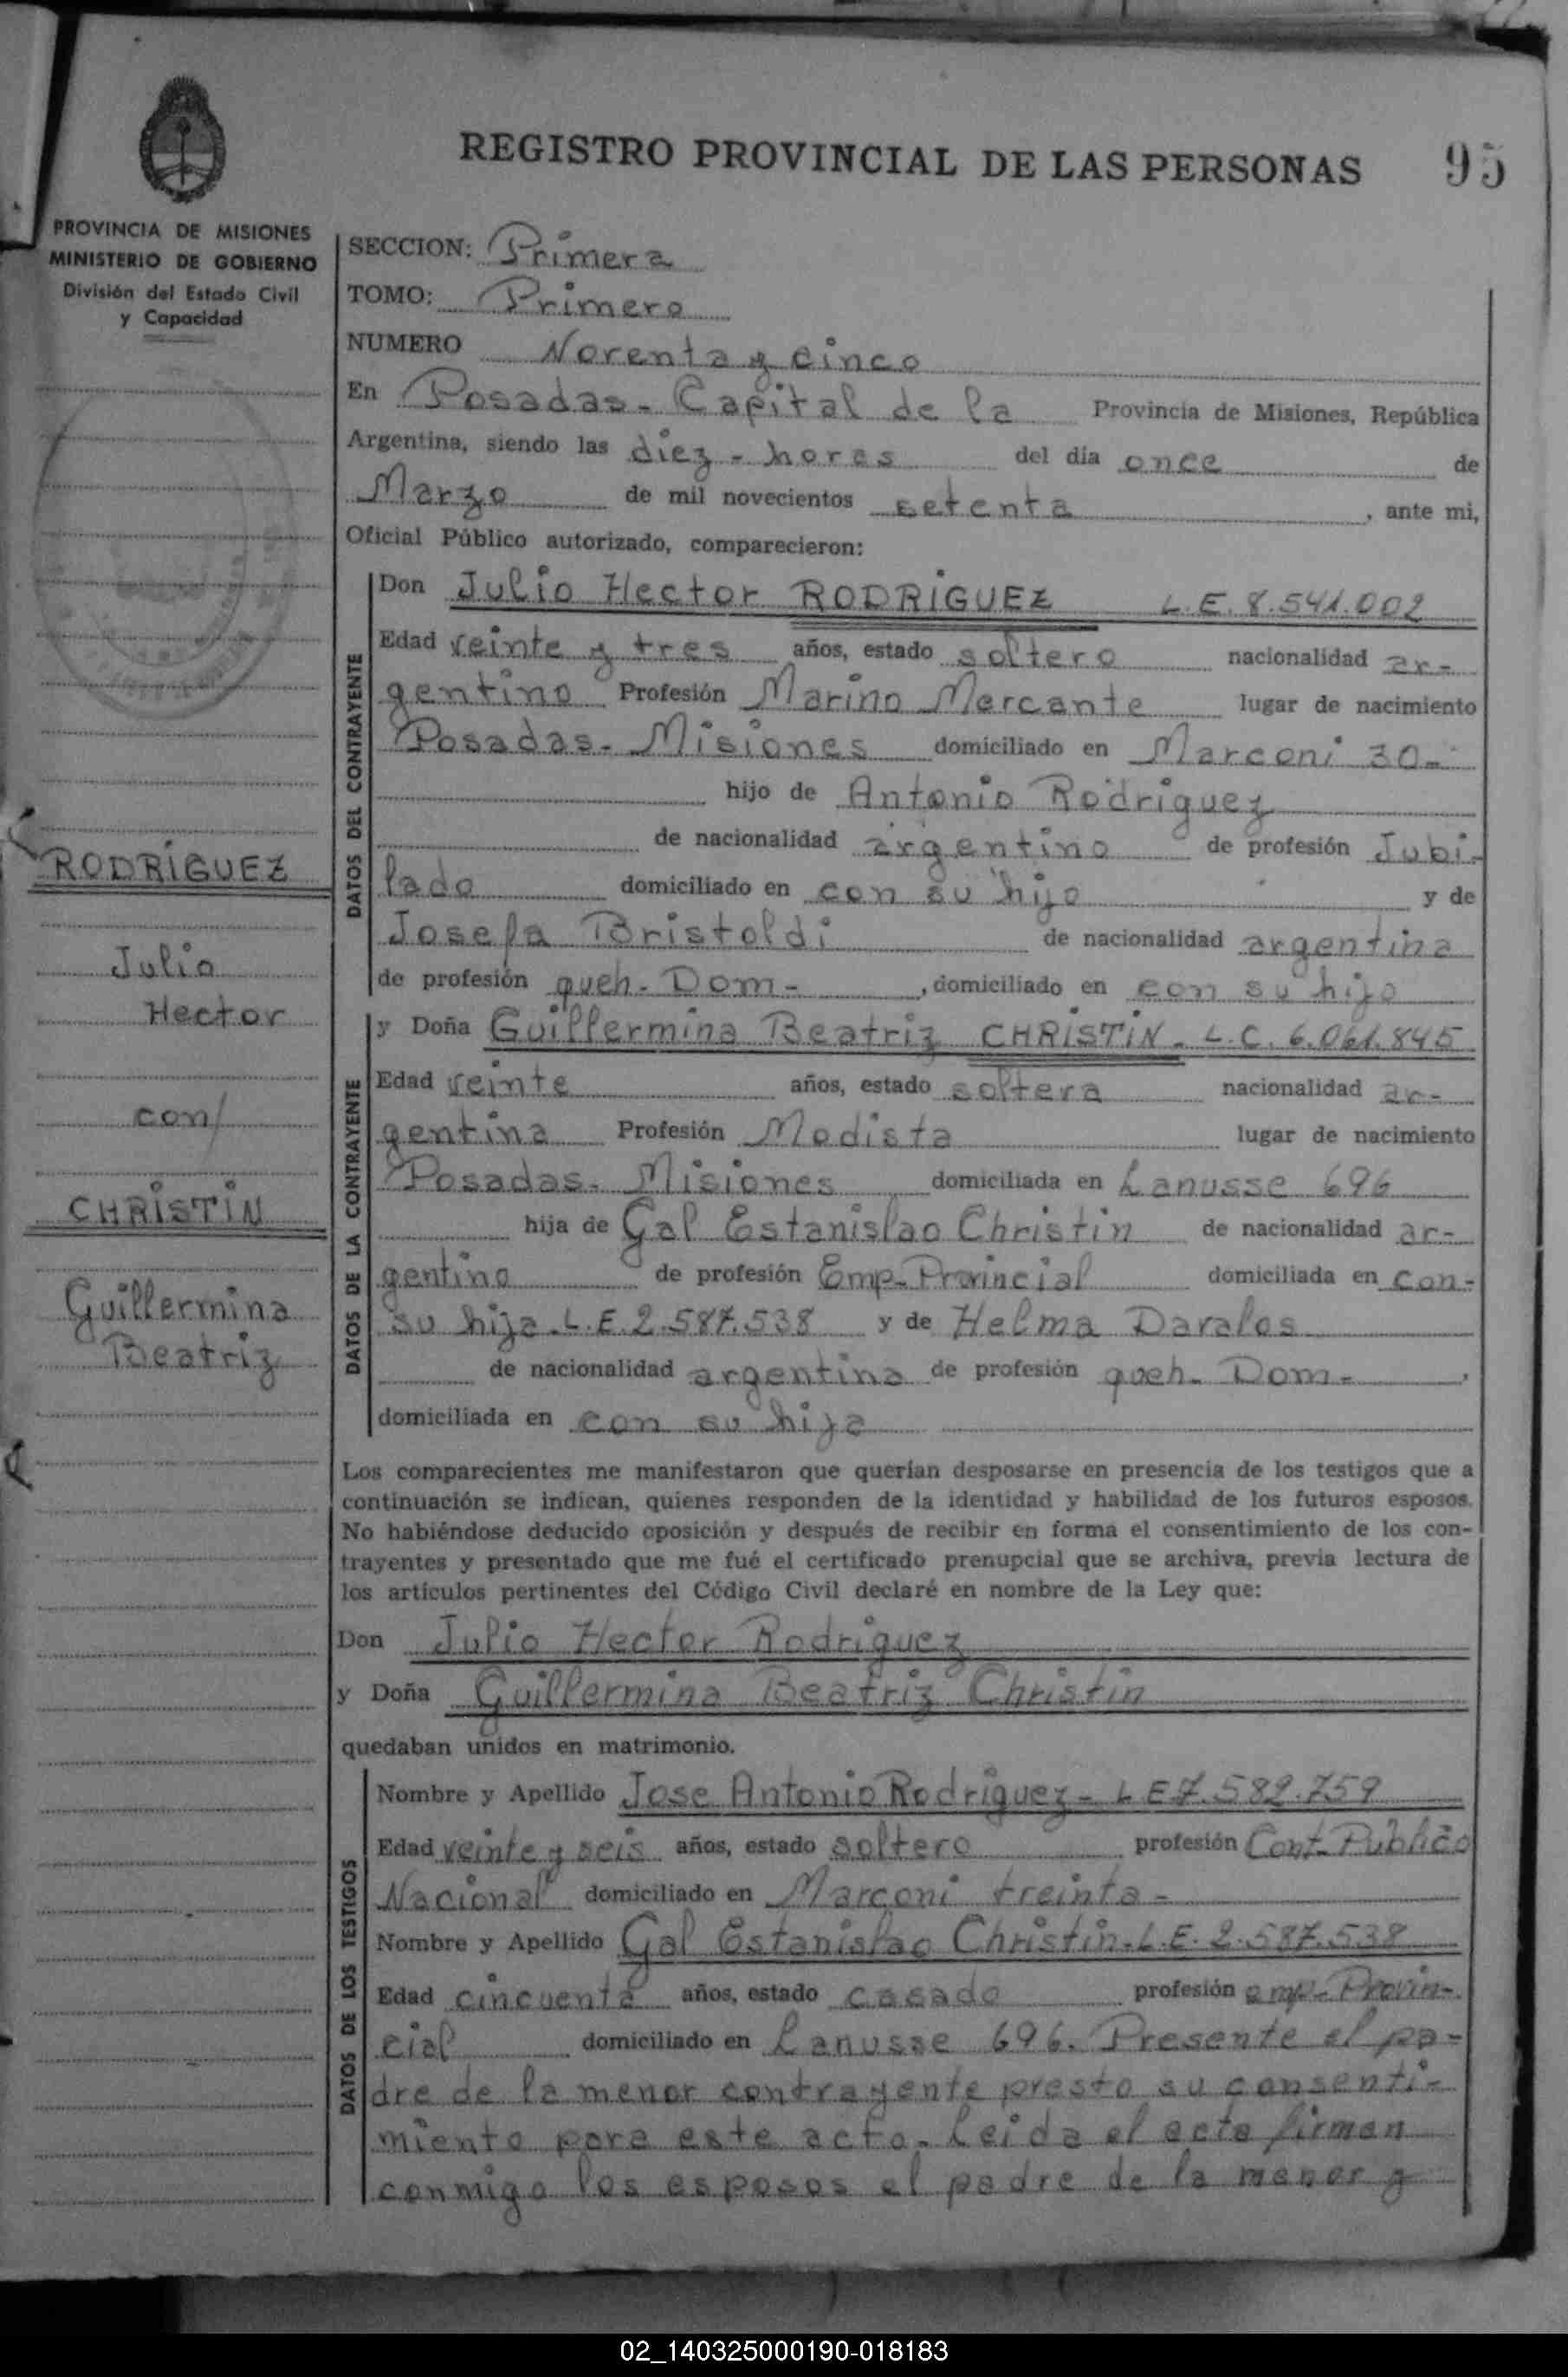 REGISTRO PROVINCIAL DE LAS PERSONAS 95
PROVINCIA DE MISIONES
MINISTERIO DE GOBIERNO
División del Estado Civil
y Capacidad
SECCION: Primera
TOMO: Primero
NUMERO Noventa y cinco
En Posadas - Capital de la Provincia de Misiones, República
Argentina, siendo las diez - horas del día once de
Marzo de mil novecientos setenta, ante mi,
Oficial Público autorizado, comparecieron:
DATOS DEL CONTRAYENTE
Don Julio Hector RODRIGUEZ L.E. 8.541.002
Edad veinte y tres años, estado soltero nacionalidad ar-
gentino Profesión Marino Mercante lugar de nacimiento
Posadas - Misiones domiciliado en Marconi 30-
hijo de Antonio Rodriguez
de nacionalidad argentino de profesión Jubi-
lado domiciliado en con su hijo y de
Josefa Bristoldi de nacionalidad argentina
de profesión queh. Dom-, domiciliado en con su hijo
DATOS DE LA CONTRAYENTE
y Doña Guillermina Beatriz CHRISTIN - L.C. 6.061.845
Edad veinte años, estado soltera nacionalidad ar-
gentina Profesión Modista lugar de nacimiento
Posadas - Misiones domiciliada en Lanusse 696
hija de Gal Estanislao Christin de nacionalidad ar-
gentino de profesión Emp- Provincial domiciliada en con-
su hija. L.E. 2.587.538 y de Helma Davalos
de nacionalidad argentina de profesión queh. Dom-,
domiciliada en con su hija
RODRIGUEZ
Julio
Hector
con/
CHRISTIN
Guillermina
Beatriz
Los comparecientes me manifestaron que querían desposarse en presencia de los testigos que a
continuación se indican, quienes responden de la identidad y habilidad de los futuros esposos.
No habiéndose deducido oposición y después de recibir en forma el consentimiento de los con-
trayentes y presentado que me fué el certificado prenupcial que se archiva, previa lectura de
los artículos pertinentes del Código Civil declaré en nombre de la Ley que:
Don Julio Hector Rodriguez
y Doña Guillermina Beatriz Christin
quedaban unidos en matrimonio.
DATOS DE LOS TESTIGOS
Nombre y Apellido Jose Antonio Rodriguez - L E 7.582.759
Edad veinte y seis años, estado soltero profesión Cont. Publico
Nacional domiciliado en Marconi treinta -
Nombre y Apellido Gal Estanislao Christin. L.E. 2.587.538
Edad cincuenta años, estado casado profesión emp- Provin-
cial domiciliado en Lanusse 696. Presente el pa-
dre de la menor contrayente presto su consenti-
miento para este acto. Leida el acta firman
conmigo los esposos el padre de la menor y
02_140325000190-018183